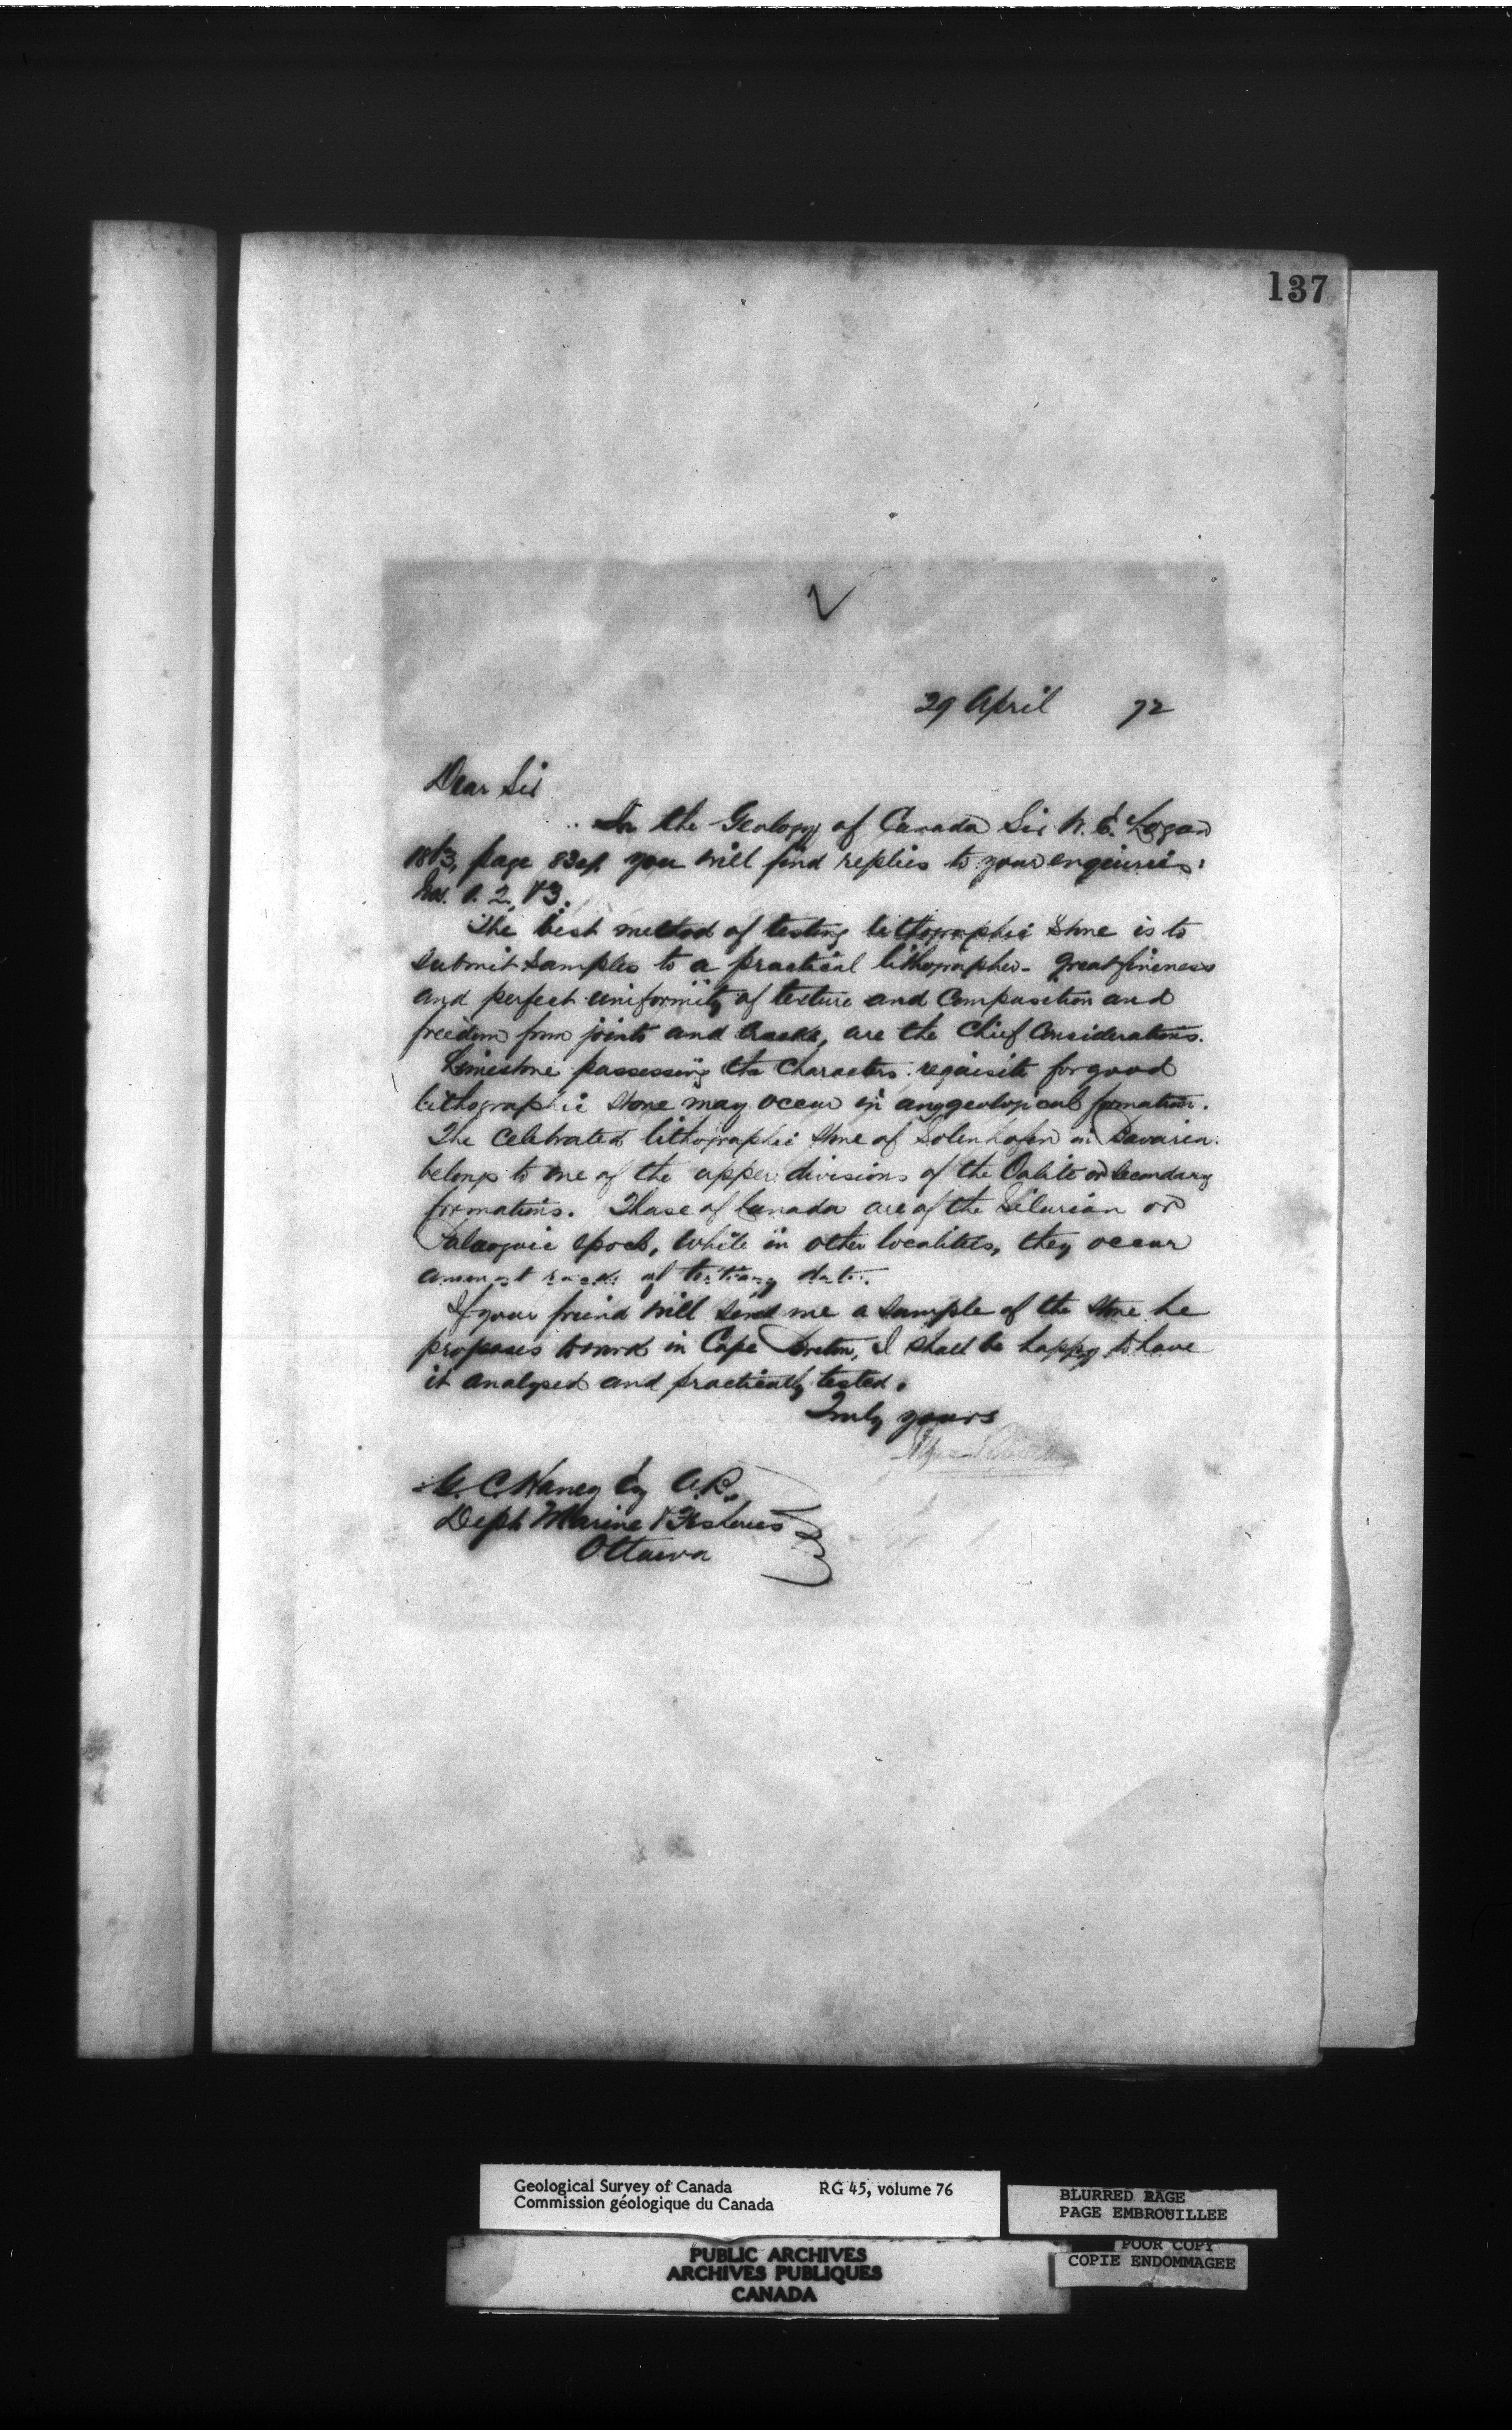 137
29 April 72
Dear Sir
In the Geology of Canada Sir W. E. Logan
1863, page 834 you will find replies to your enquiries:
Nos. 1. 2. & 3.
The best method of testing lithographic Stone is to
submit samples to a practical lithographer. great fineness
and perfect uniformity of texture and Composition and
freedom from joints and cracks, are the Chief Considerations.
Limestone possessing the Characters requisite for good
lithographic stone may occur in any geological formation.
The Celebrated lithographic stone of Solenhofen in Bavaria
belongs to one of the upper divisions of the Oolite or Secondary
formations. Those of Canada are of the Silurian or
Palaeozoic epoch, While in other localities, they occur
amongst rocks of tertiary date.
If your friend will send me a sample of the stone he
proposes to work in Cape Breton, I shall be happy to have
it analysed and practically tested.
Truly yours
C. Haney Esq
Dept Marine & Fisheries
Ottawa
Geological Survey of Canada RG 45, volume 76
Commission géologique du Canada
BLURRED PAGE
PAGE EMBROUILLEE
POOR COPY
COPIE ENDOMMAGEE
PUBLIC ARCHIVES
ARCHIVES PUBLIQUES
CANADA